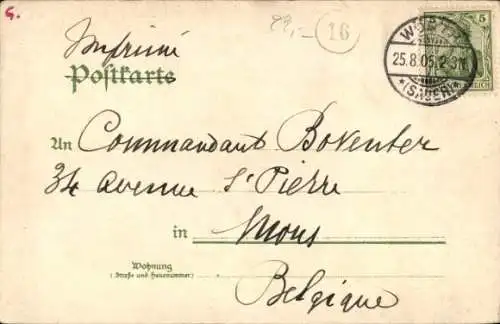 G.
29,-
16
Imprimé
Postkarte
WÖRTH
25.8.05. 2-3N.
*(SAUER)*
5
REICH
An Commandant Boventer
34 avenue St Pierre
in Mons
Wohnung
(Straße und Hausnummer)
Belgique